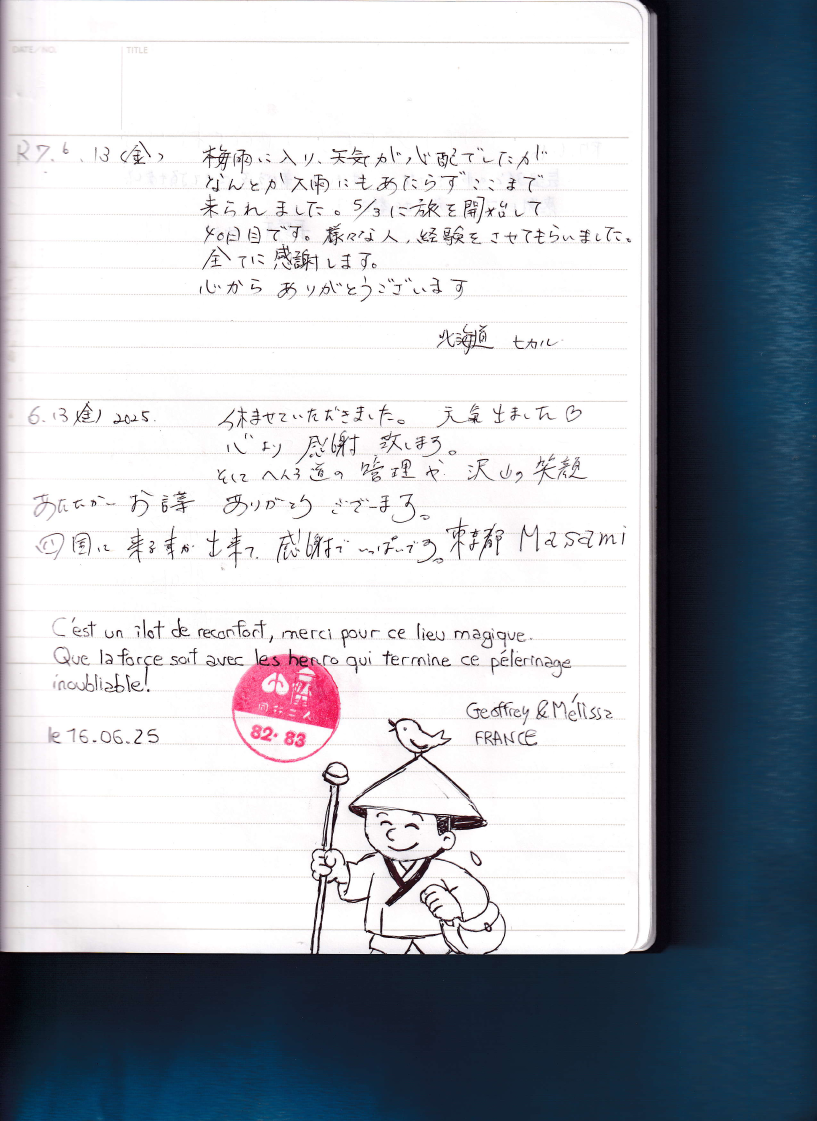 DATE/NO.
TITLE
R7.6.13(金)
梅雨に入り、天気が心配でしたが
なんとか大雨にもあたらずここまで
来られました。5/3に旅を開始して
40日目です。様々な人、経験をさせてもらいました。
全てに感謝します。
心から ありがとうございます
北海道 ヒカル
6.13(金) 2025.
休ませていただきました。 元気出ました
心より 感謝 致します。
そして へんろ道の 管理や 沢山の 笑顔
あたたかい お
ありがとう ございます。
四国に 来る事が 出来て、感謝で いっぱいです。東京都 Masami
C'est un îlot de reconfort, merci pour ce lieu magique.
Que la force soit avec les henro qui termine ce pélerinage
inoubliable!
Geoffrey & Mélissa
FRANCE
le 16.06.25
同行二人
82・83